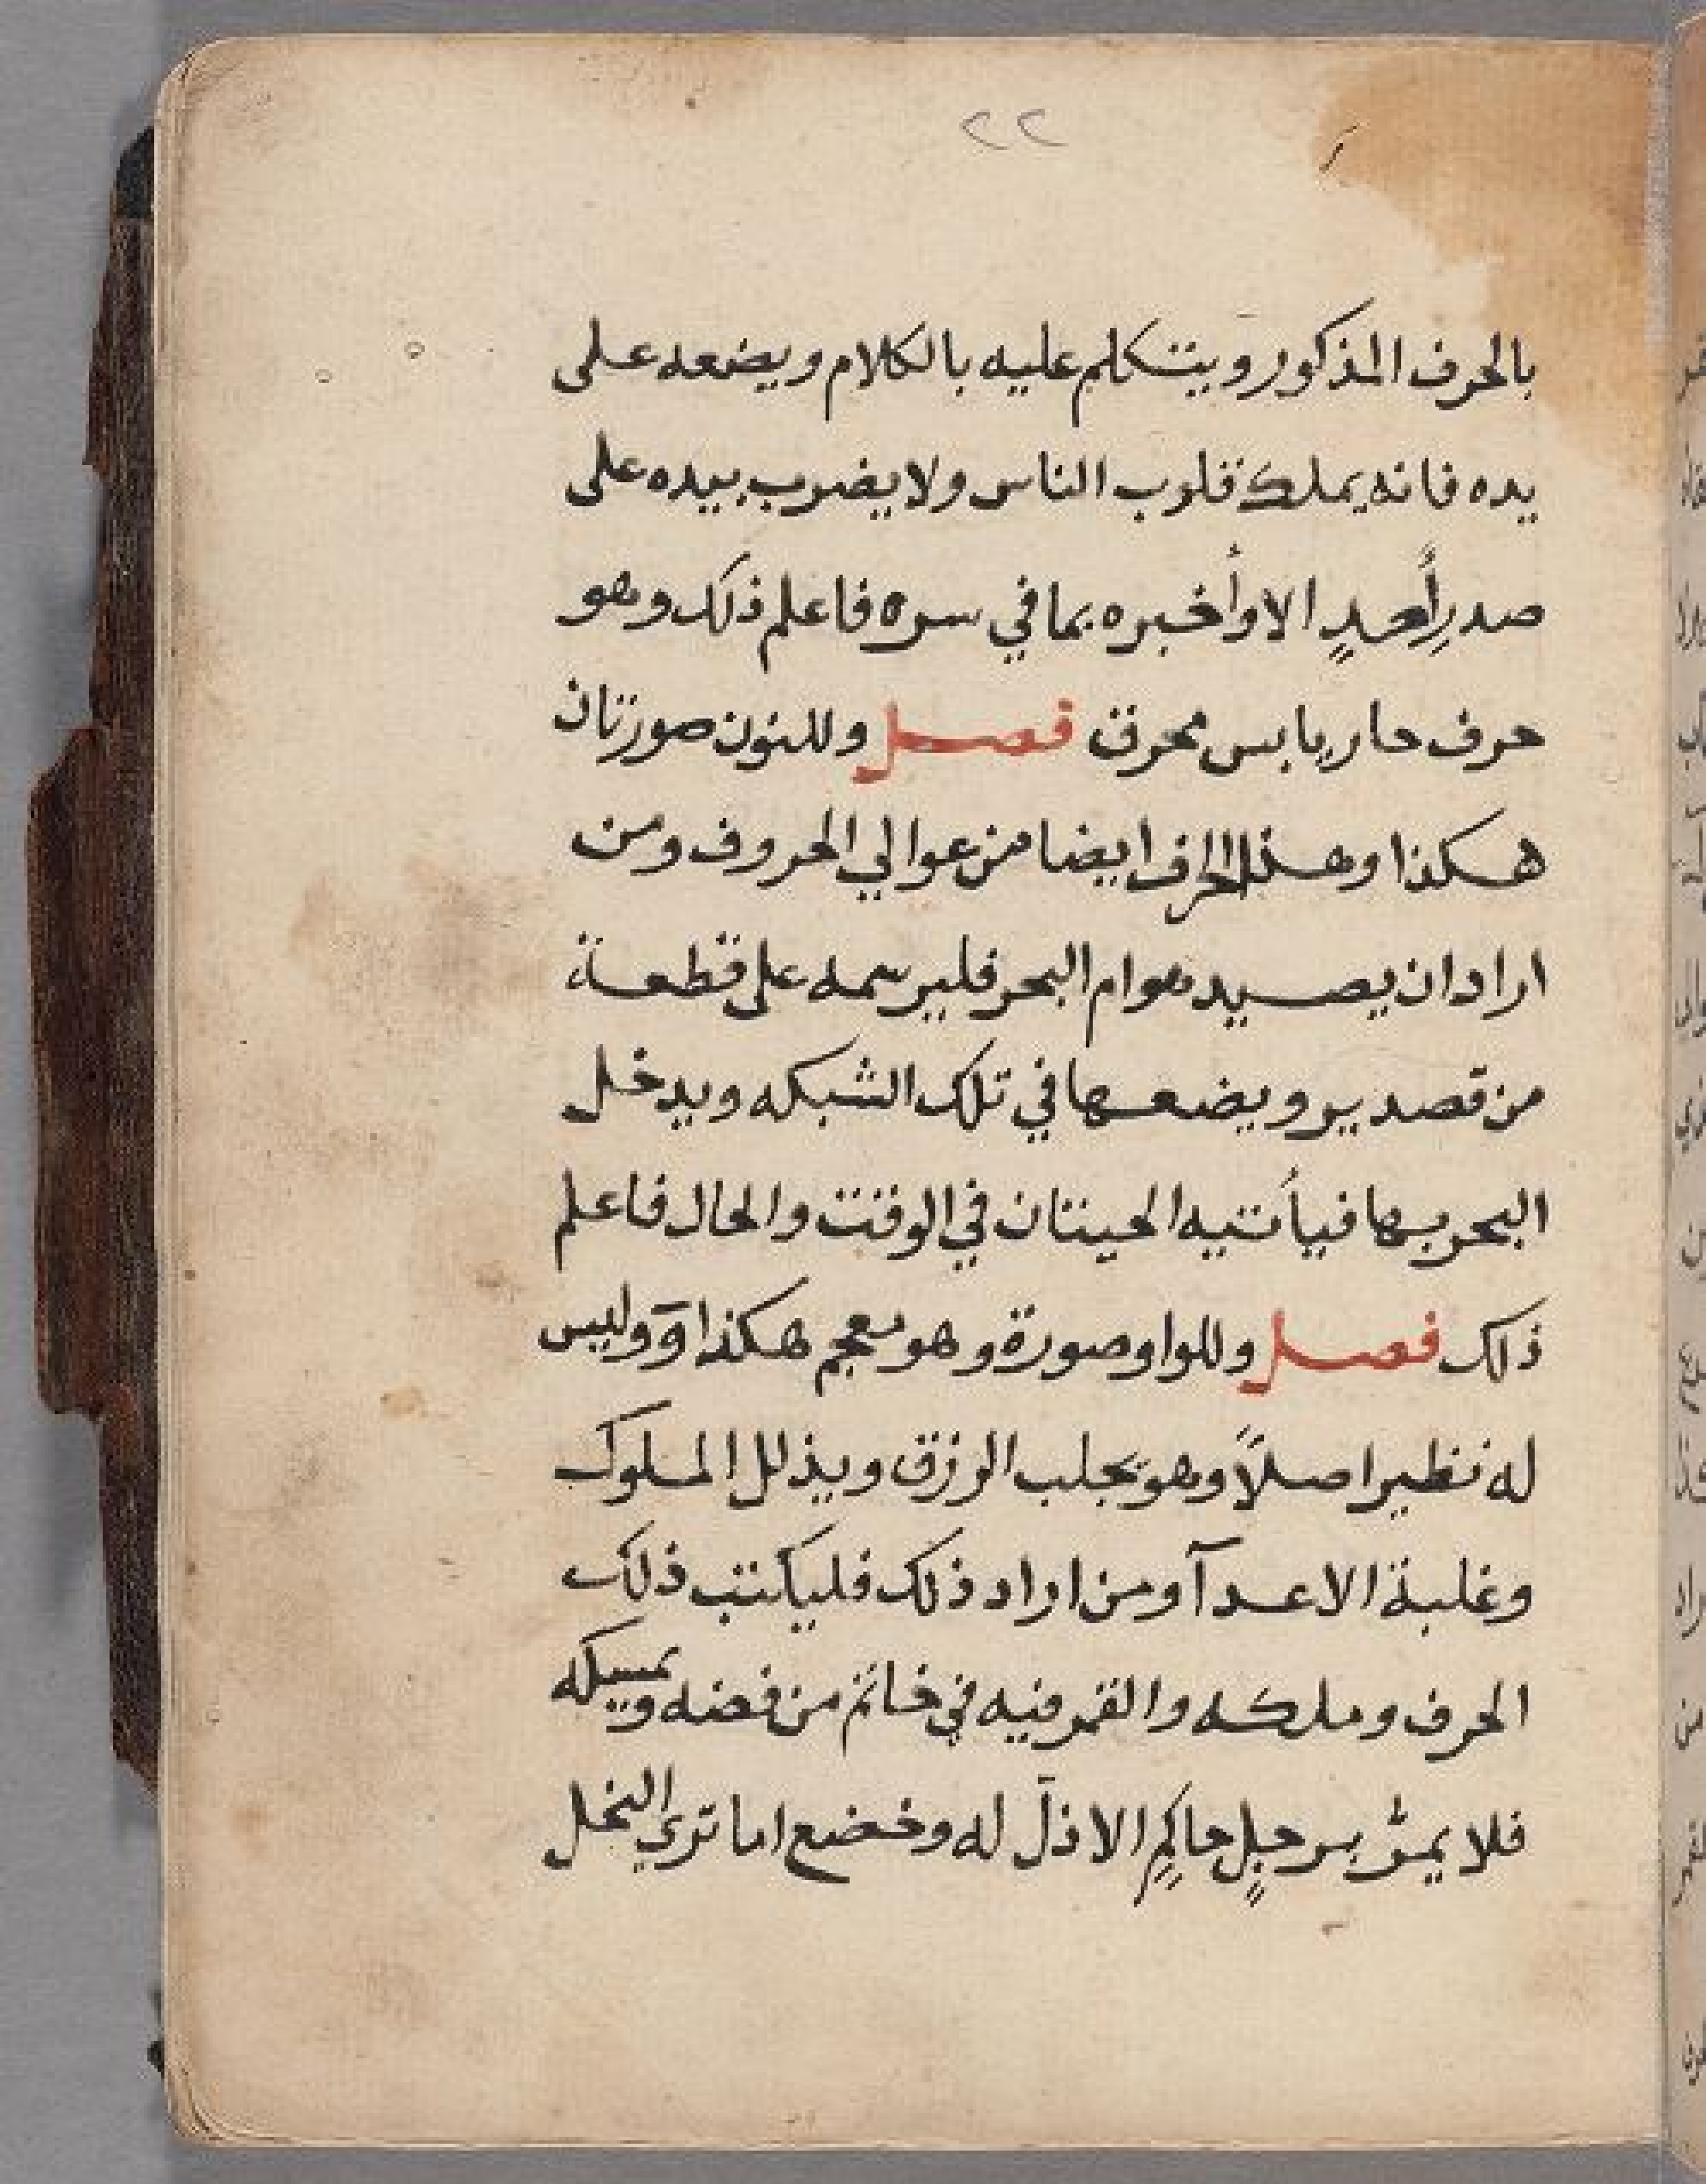 ٢٢
بالحرف المذكور ويتكلم عليه بالكلام ويضعه على
يده فانه يملك قلوب الناس ولا يضرب بيده على
صدرِ أحدٍ الا وأخبره بما في سره فاعلم ذلك وهو
حرف حار يابس محرق فصل وللنون صورتان
هكذا وهذا الحرف ايضا من عوالي الحروف ومن
اراد ان يصيد هوام البحر فليرسمه على قطعة
من قصدير ويضعها في تلك الشبكه ويدخل
البحر بها فيأتيه الحيتان في الوقت والحال فاعلم
ذلك فصل وللواو صورة وهو معجم هكذا وليس
له نظير اصلاً وهو يجلب الرزق ويذلل الملوك
وغلبة الاعدآ ومن اراد ذلك فليكتب ذلك
الحرف وملكه والقمر فيه في خاتم من فضه ويمسكه
فلا يمرّ برجلٍ حاكمٍ الا ذلّ له وخضع اما تري النخل